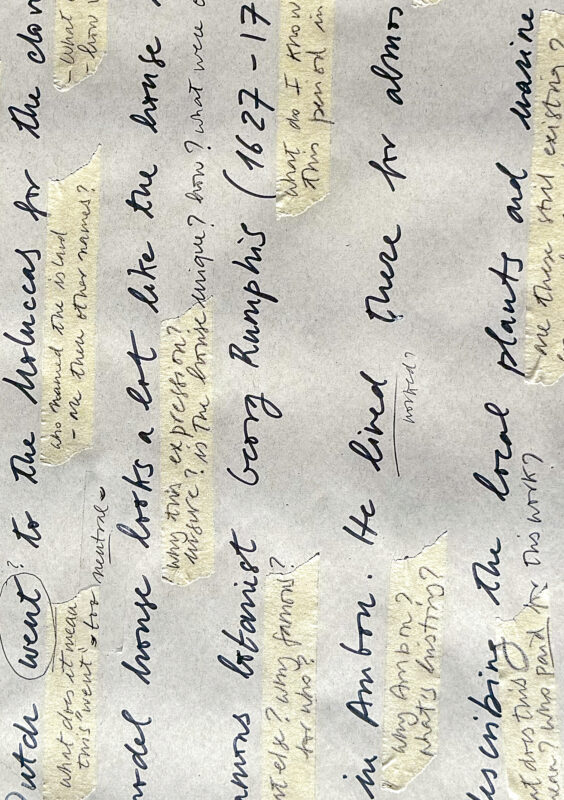 utch went? to the Moluccas for the clov
what does it mean
this "went" - too neutral -
who named the island
- are there other names?
- What
- how
odel house looks a lot like the house
Why this expression?
unsure? is the house unique? how? what were
amous botanist Georg Rumphis (1627-17
t else? why famous?
for who?
What do I know
this period in
in Ambon. He lived there for almos
Why Ambon?
What's
worked?
escribing the local plants and marine
t does this
ean? who paid for this work?
are these still existing?